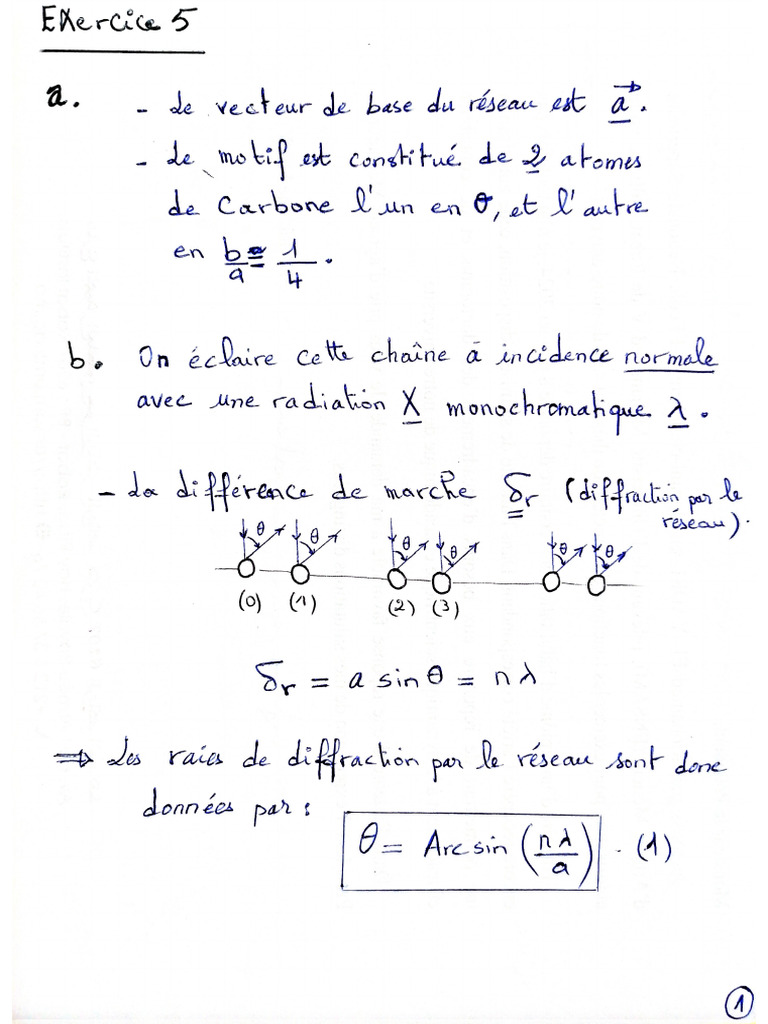 Exercice 5
a. - Le vecteur de base du réseau est a⃗.
- Le motif est constitué de 2 atomes
de Carbone l'un en O, et l'autre
en b/a = 1/4.
b. On éclaire cette chaîne à incidence normale
avec une radiation X monochromatique λ.
- La différence de marche δr (diffraction par le
réseau).
θ θ θ θ θ θ
(0) (1) (2) (3)
δr = a sin θ = nλ
⇒ Les raies de diffraction par le réseau sont donc
données par :
θ = Arc sin (nλ/a) . (1)
1